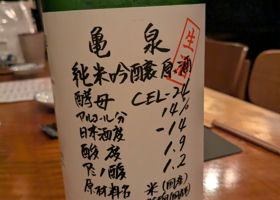 亀泉
生酒
純米吟醸原酒
酵母 CEL-24
アルコール分 14%
日本酒度 -14
酸度 1.9
アミノ酸 1.2
原材料名 米(国産)